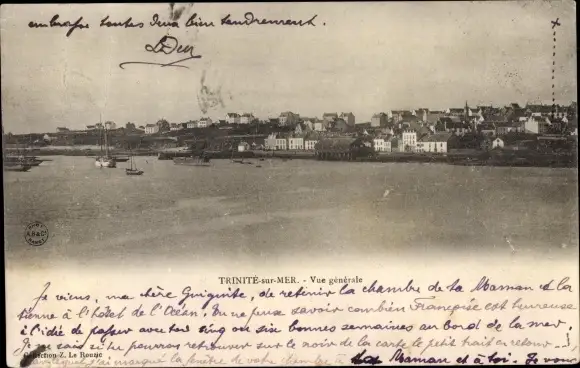 embrasse toutes deux bien tendrement.
TRINITÉ-sur-MER. - Vue générale
Je viens, ma chère Guiguite, de retenir la chambre de ta Maman et la
tienne à l'hôtel de l'Océan. Tu ne peux savoir combien Françoise est heureuse
à l'idée de passer avec toi cinq ou six bonnes semaines au bord de la mer.
Je ne sais si tu pourras retrouver sur le noir de la carte le petit trait en
Collection Z. Le Rouzic
marqué la fenêtre de votre chambre à ta Maman et à toi. Je vous